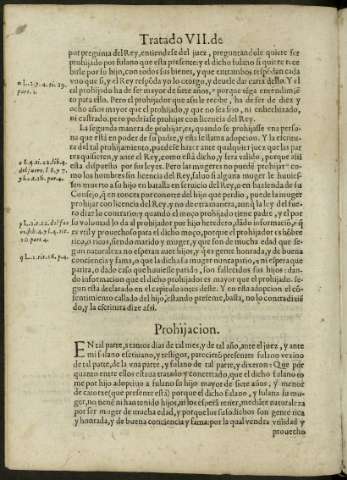 Tratado VII. de
por pregunta del Rey, entiendese del juez, preguntandole quiere ser
prohijado por fulano que esta presente: y el dicho fulano si quiere rece
birle por su hijo, con todos sus bienes, y que entrambos respõdan cada
vno que si, y el Rey respõda yo lo otorgo, y deuele dar carta dello. Y el
tal prohijado ha de ser mayor de siete años, porque tẽga entendimiẽ
to para ello. Pero el prohijador que assi le recibe, ha de ser de diez y
ocho años mayor que el moço, y que no sea frio, ni enhechizado,
ni castrado. pero podrâ se prohijar con licencia del Rey.
La segunda manera de prohijar, es, quando se prohijasse vna perso
na que està en poder de su padre, y esta se llama adopcion. Y la escritu-
ra del tal prohijamiento, puede se hazer ante qualquier juez que las par
tes quisieren, y ante el Rey, como està dicho, y sera valido, porque assi
esta dispuesto por sus leyes. Pero las mugeres no puedẽ prohijar co-
mo los hombres sin licencia del Rey, saluo si alguna muger le huuies-
sen muerto a su hijo en batalla en seruicio del Rey, o en hazienda de su
Consejo, q̃ en tonces por conorte del hijo que perdio, puede la muger
prohijar con licencia del Rey, y no de otra manera, aunq̃ la ley del fue-
ro dize lo contrario: y quando el moço prohijado tiene padre, y el por
su voluntad lo da al prohijador por hijo heredero, dãdo informaciõ, q̃
es vtil y prouechoso para el dicho moço, porque el prohijador es hõbre
rico, o ricos, siendo marido y muger, y que son de mucha edad que se-
gun naturaleza no esperan auer hijos, y que es gente honrada, y de buena
conciencia y fama, o que la dicha su muger nunca pario, e ni espera que
parira, o dado caso que huuiesse parido, son fallecidos sus hijos: dan-
do informacion que el dicho prohijador es mayor que el prohijado. se-
gun esta declarado en el capitulo antes deste. Y en esta adopcion el co-
sentimiento callado del hijo, estando presente, basta, no lo contradizien
do, y la escritura dize assi.
Prohijacion.
EN tal parte, a tantos dias de tal mes, y de tal año, ante el juez, y ante
mi fulano escriuano, y testigos, parecierõ presentes fulano vezino
de tal parte, de la vna parte, y fulano de tal parte, y dixeron: Que por
quanto entre ellos està tratado y concertado, que el dicho fulano to
me por hijo adoptiuo a fulano su hijo mayor de siete años, y menor
de catorze (que presente està) porque el dicho fulano, y fulana su mu-
ger, no tienẽ ni han tenido hijos, ni los esperã tener, mediãte naturaleza
por ser muger de mucha edad, y porque los susodichos son gente rica
y honrada, y de buena conciencia y fama: por la qual vendra vtilidad y
prouecho